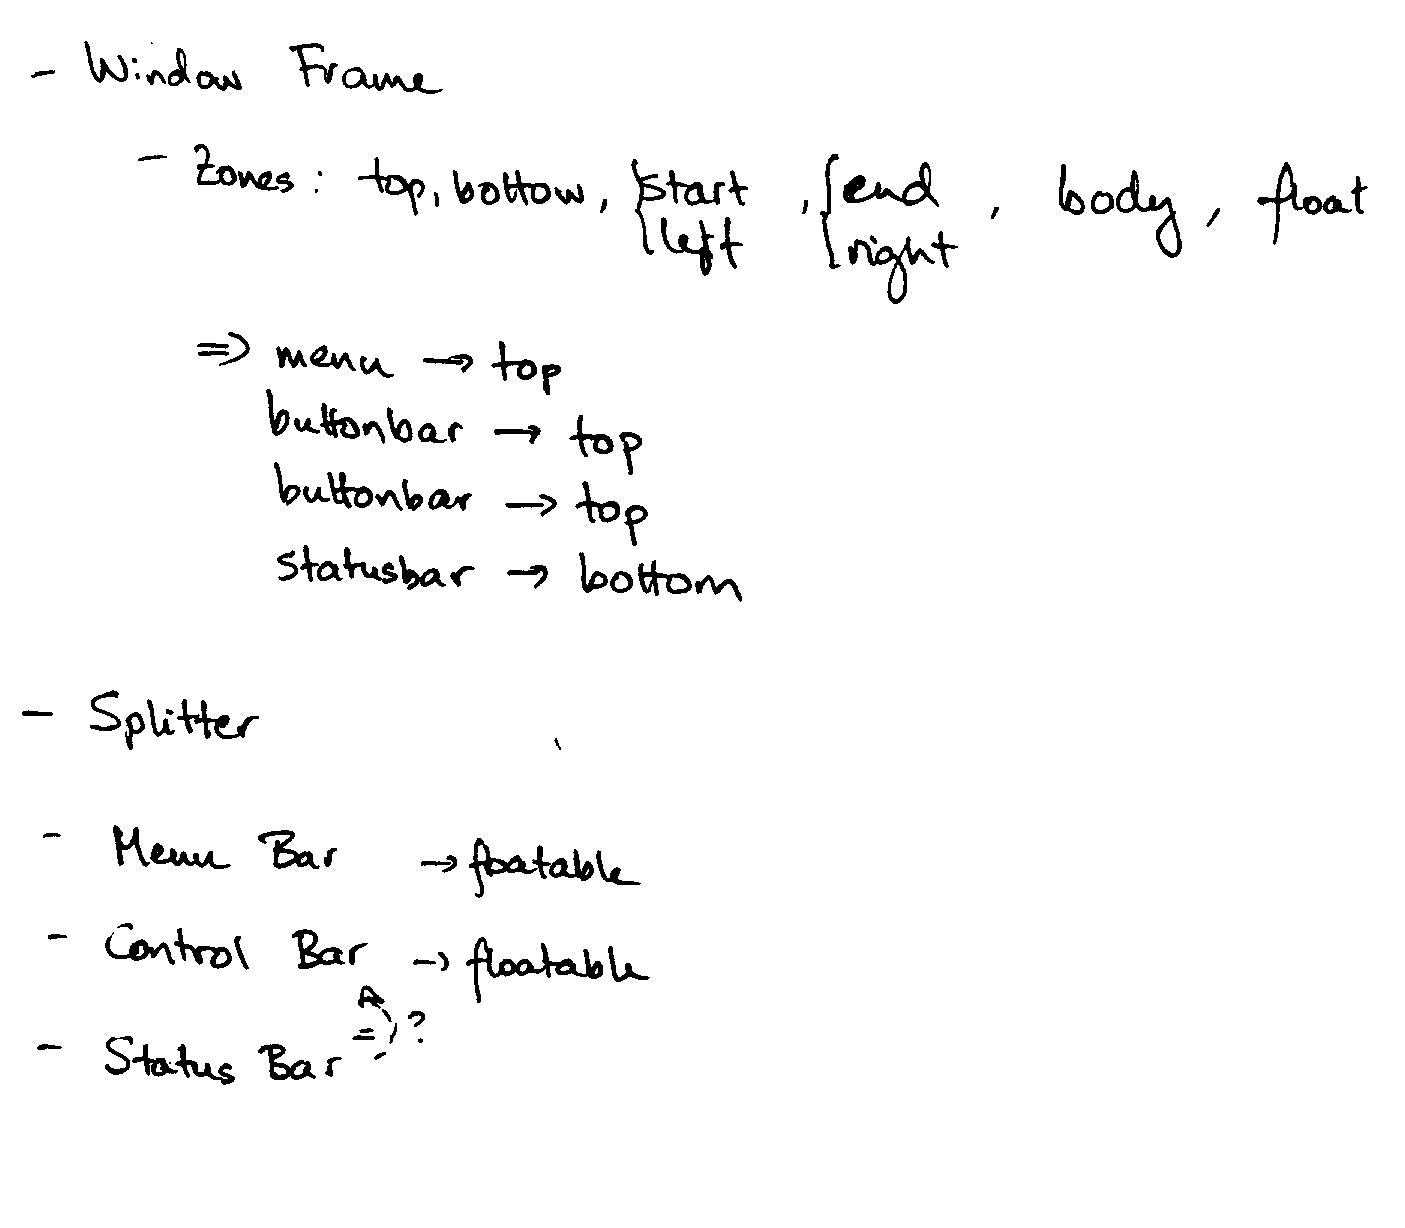 - Window Frame
- Zones: top, bottom, {start , {end , body, float
{left {right
=> menu → top
buttonbar → top
buttonbar → top
statusbar → bottom
- Splitter
- Menu Bar → floatable
- Control Bar → floatable
- Status Bar = ?